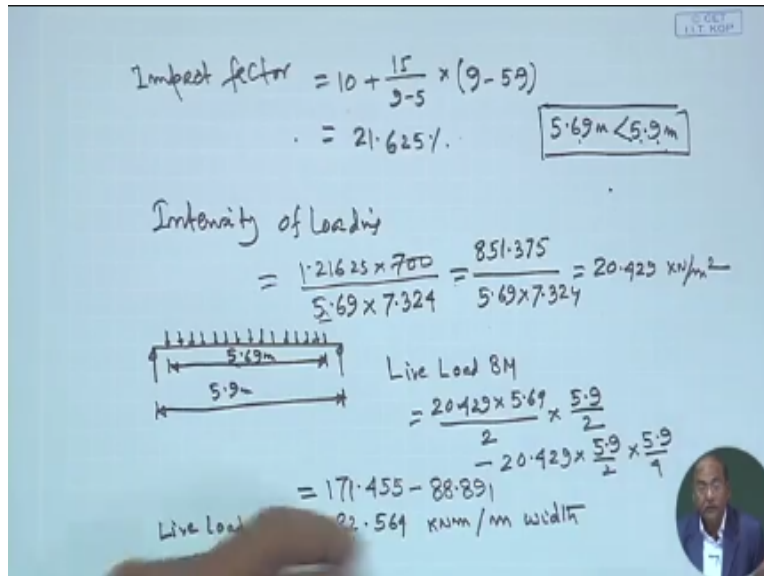 © CET
I.I.T. KGP
Impact factor = 10 + 15/9-5 × (9-59)
= 21.625%.
5.69m < 5.9m
Intensity of loading
= 1.21625 × 700 / 5.69 × 7.324 = 851.375 / 5.69 × 7.324 = 20.429 KN/m²
5.69m
5.9m
Live Load BM
= 20.429 × 5.69 / 2 × 5.9/2
- 20.429 × 5.9/2 × 5.9/4
= 171.455 - 88.891
Live load 82.564 KNm/m width